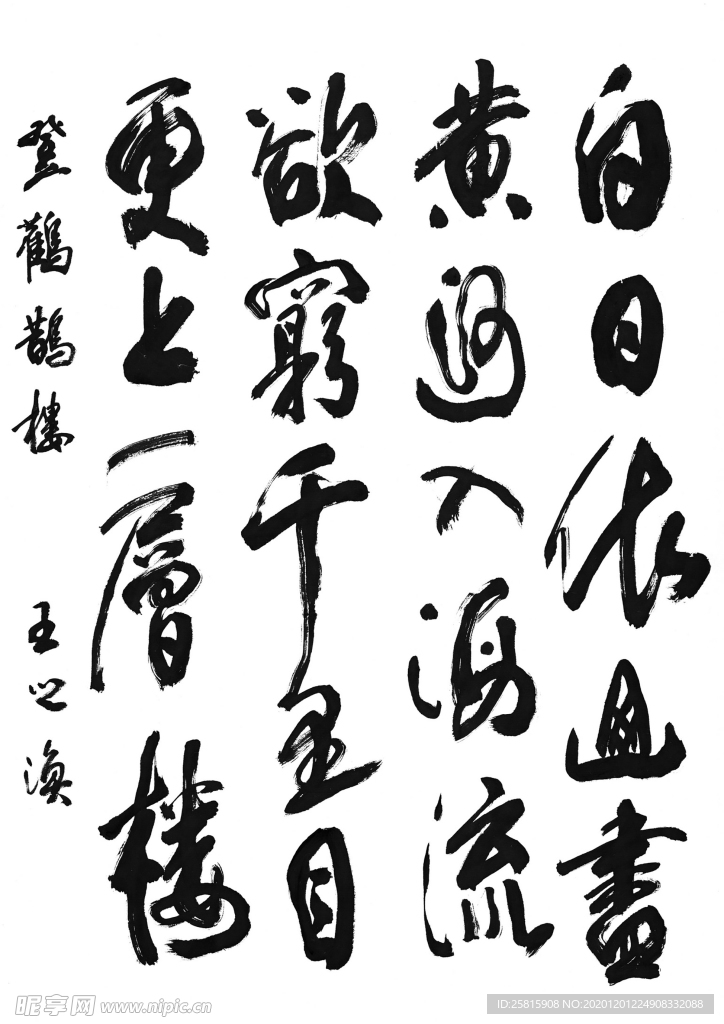 白日依山盡
黄河入海流
欲窮千里目
更上一層樓
登鸛鵲樓
王之渙
昵享网 www.nipic.cn
ID:25815908 NO:20201201224908332088